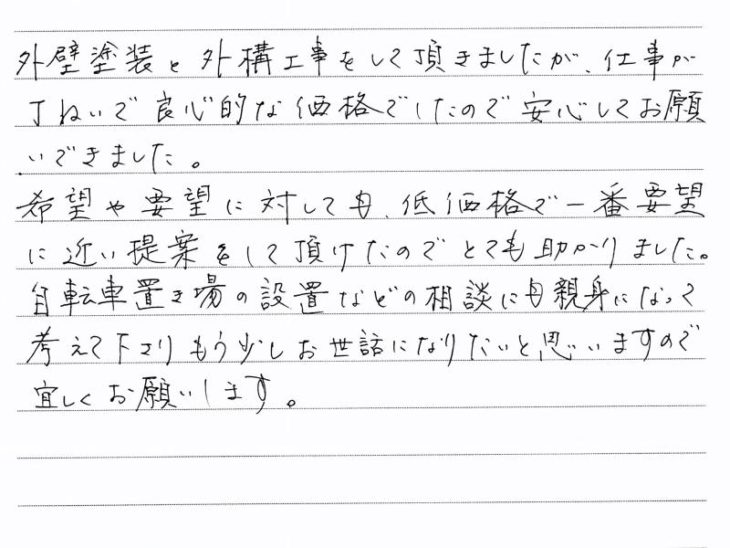 外壁塗装と外構工事をして頂きましたが、仕事が
丁ねいで良心的な価格でしたので安心してお願
いできました。
希望や要望に対しても、低価格で一番要望
に近い提案をして頂けたのでとても助かりました。
自転車置き場の設置などの相談にも親身になって
考えて下さりもう少しお世話になりたいと思いますので
宜しくお願いします。